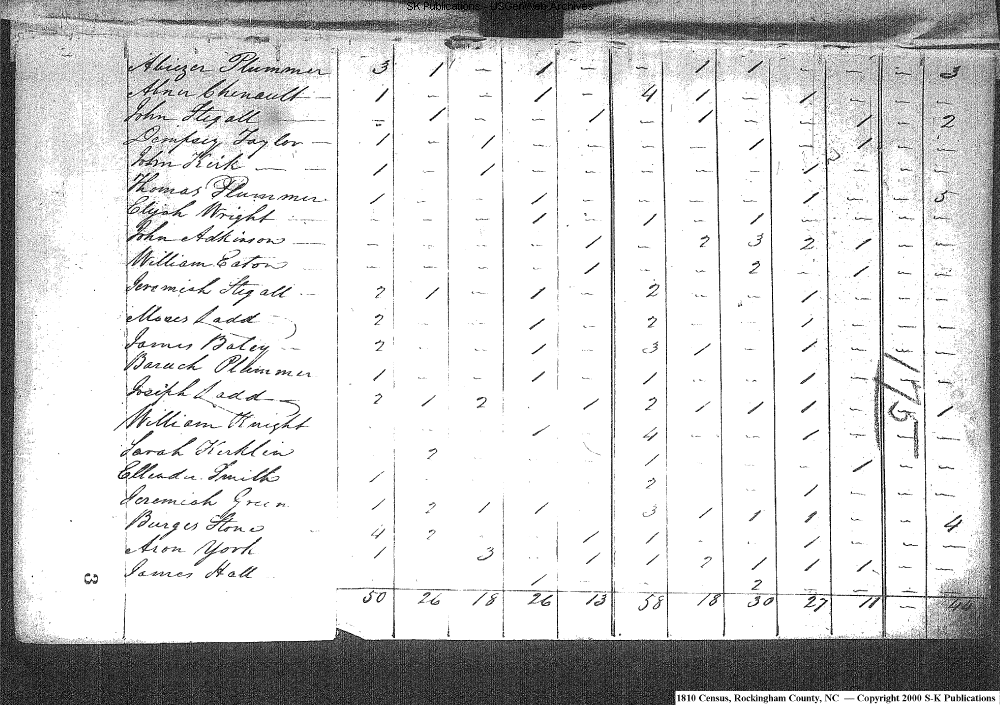 SK Publications - USGenWeb Archives
Abiezer Plummer 3 1 – 1 – – 1 1 – – – 3
Abner Chenault 1 – – 1 – 4 1 – 1 – – –
John Stegall – 1 – – 1 – 1 – – 1 – 2
Dempsey Taylor 1 – 1 – – – – 1 – 1 – –
John Kirk 1 – 1 – – – – – 1 – – –
Thomas Plummer 1 – – 1 – – – – 1 – – 5
Elijah Wright – – – 1 – 1 – 1 – – – –
John Adkinson – – – – 1 – 2 3 2 1 – –
William Eaton – – – – 1 – – 2 – 1 – –
Jeremiah Stegall 2 1 – 1 – 2 – – 1 – – –
Moses Ladd 2 – – 1 – 2 – – 1 – – –
James Baley 2 – – 1 – 3 1 – 1 – – –
Baruch Plummer 1 – – 1 – 1 – – 1 – – –
Joseph Ladd 2 1 2 1 2 1 1 1 – – 1
William Knight 1 4 – – 1 – – –
Sarah Kirklin 2 1 1
Ellender Smith 1 2 1
Jeremiah Green 1 2 1 1 3 1 1 1 – – 4
Burges Stone 4 2 1 1 1 – – –
Aron York 1 3 1 1 2 1 1 1 – –
James Hall 1 – 2
50 26 18 26 13 58 18 30 27 11 – 44
175
3
1810 Census, Rockingham County, NC — Copyright 2000 S-K Publications